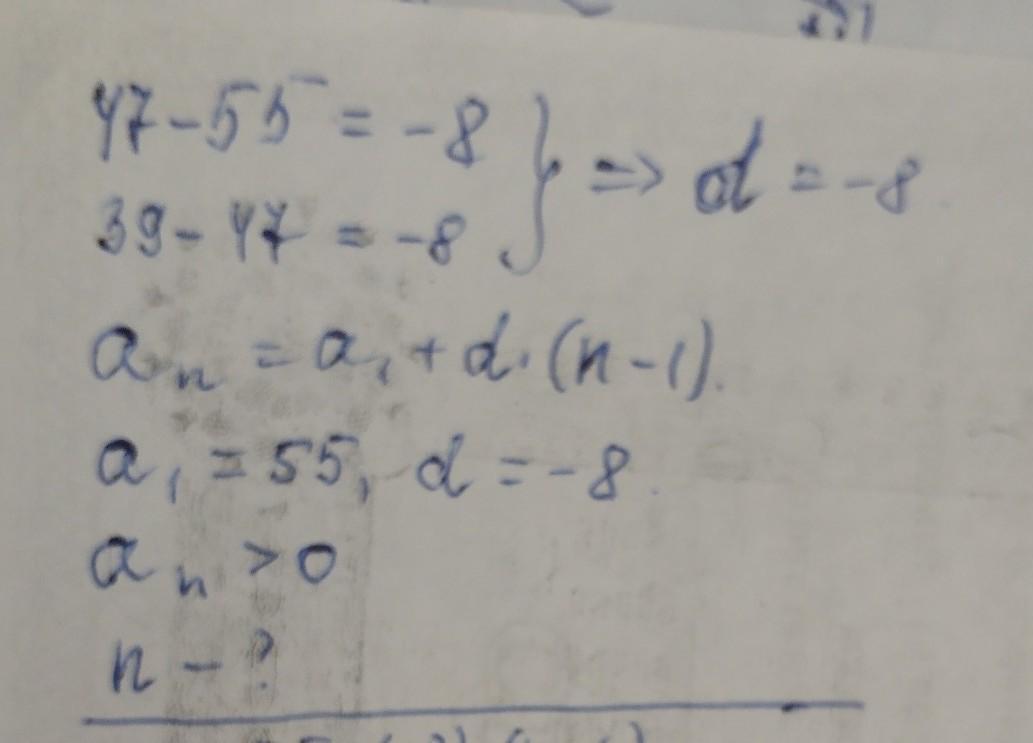 47-55 = -8
39-47 = -8 } => d = -8.
a_n = a_1 + d·(n-1).
a_1 = 55, d = -8.
a_n > 0
n - ?